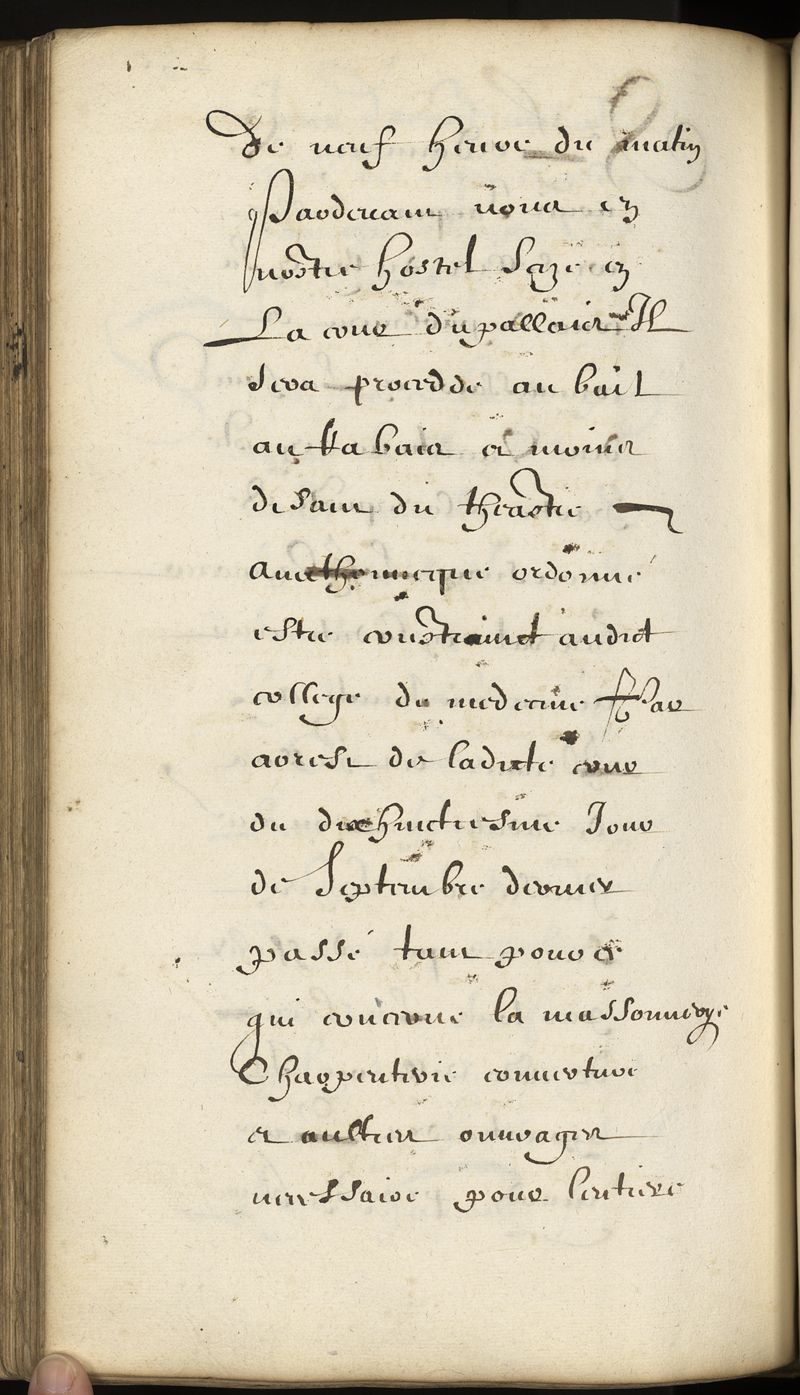 De neuf heure du matin
Pardevant nous en
nostre hostel scize en
La cour du pallais Il
sera procedde au bail
au Rabais et moins
disant du theastre
anathomicque ordonné
estre construict audict
college de medecine Par
arrest de ladicte cour
du dixhuictiesme Jour
de Septembre dernier
passé tant pour ce
qui concerne la massonnerye
Charpenterie couverture
et aultres ouvrages
necessaire pour lentiere